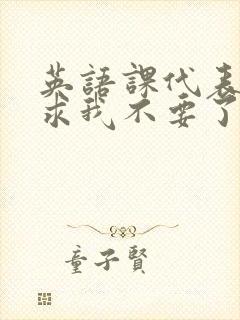 英語課代表
求我不要了
童子賢